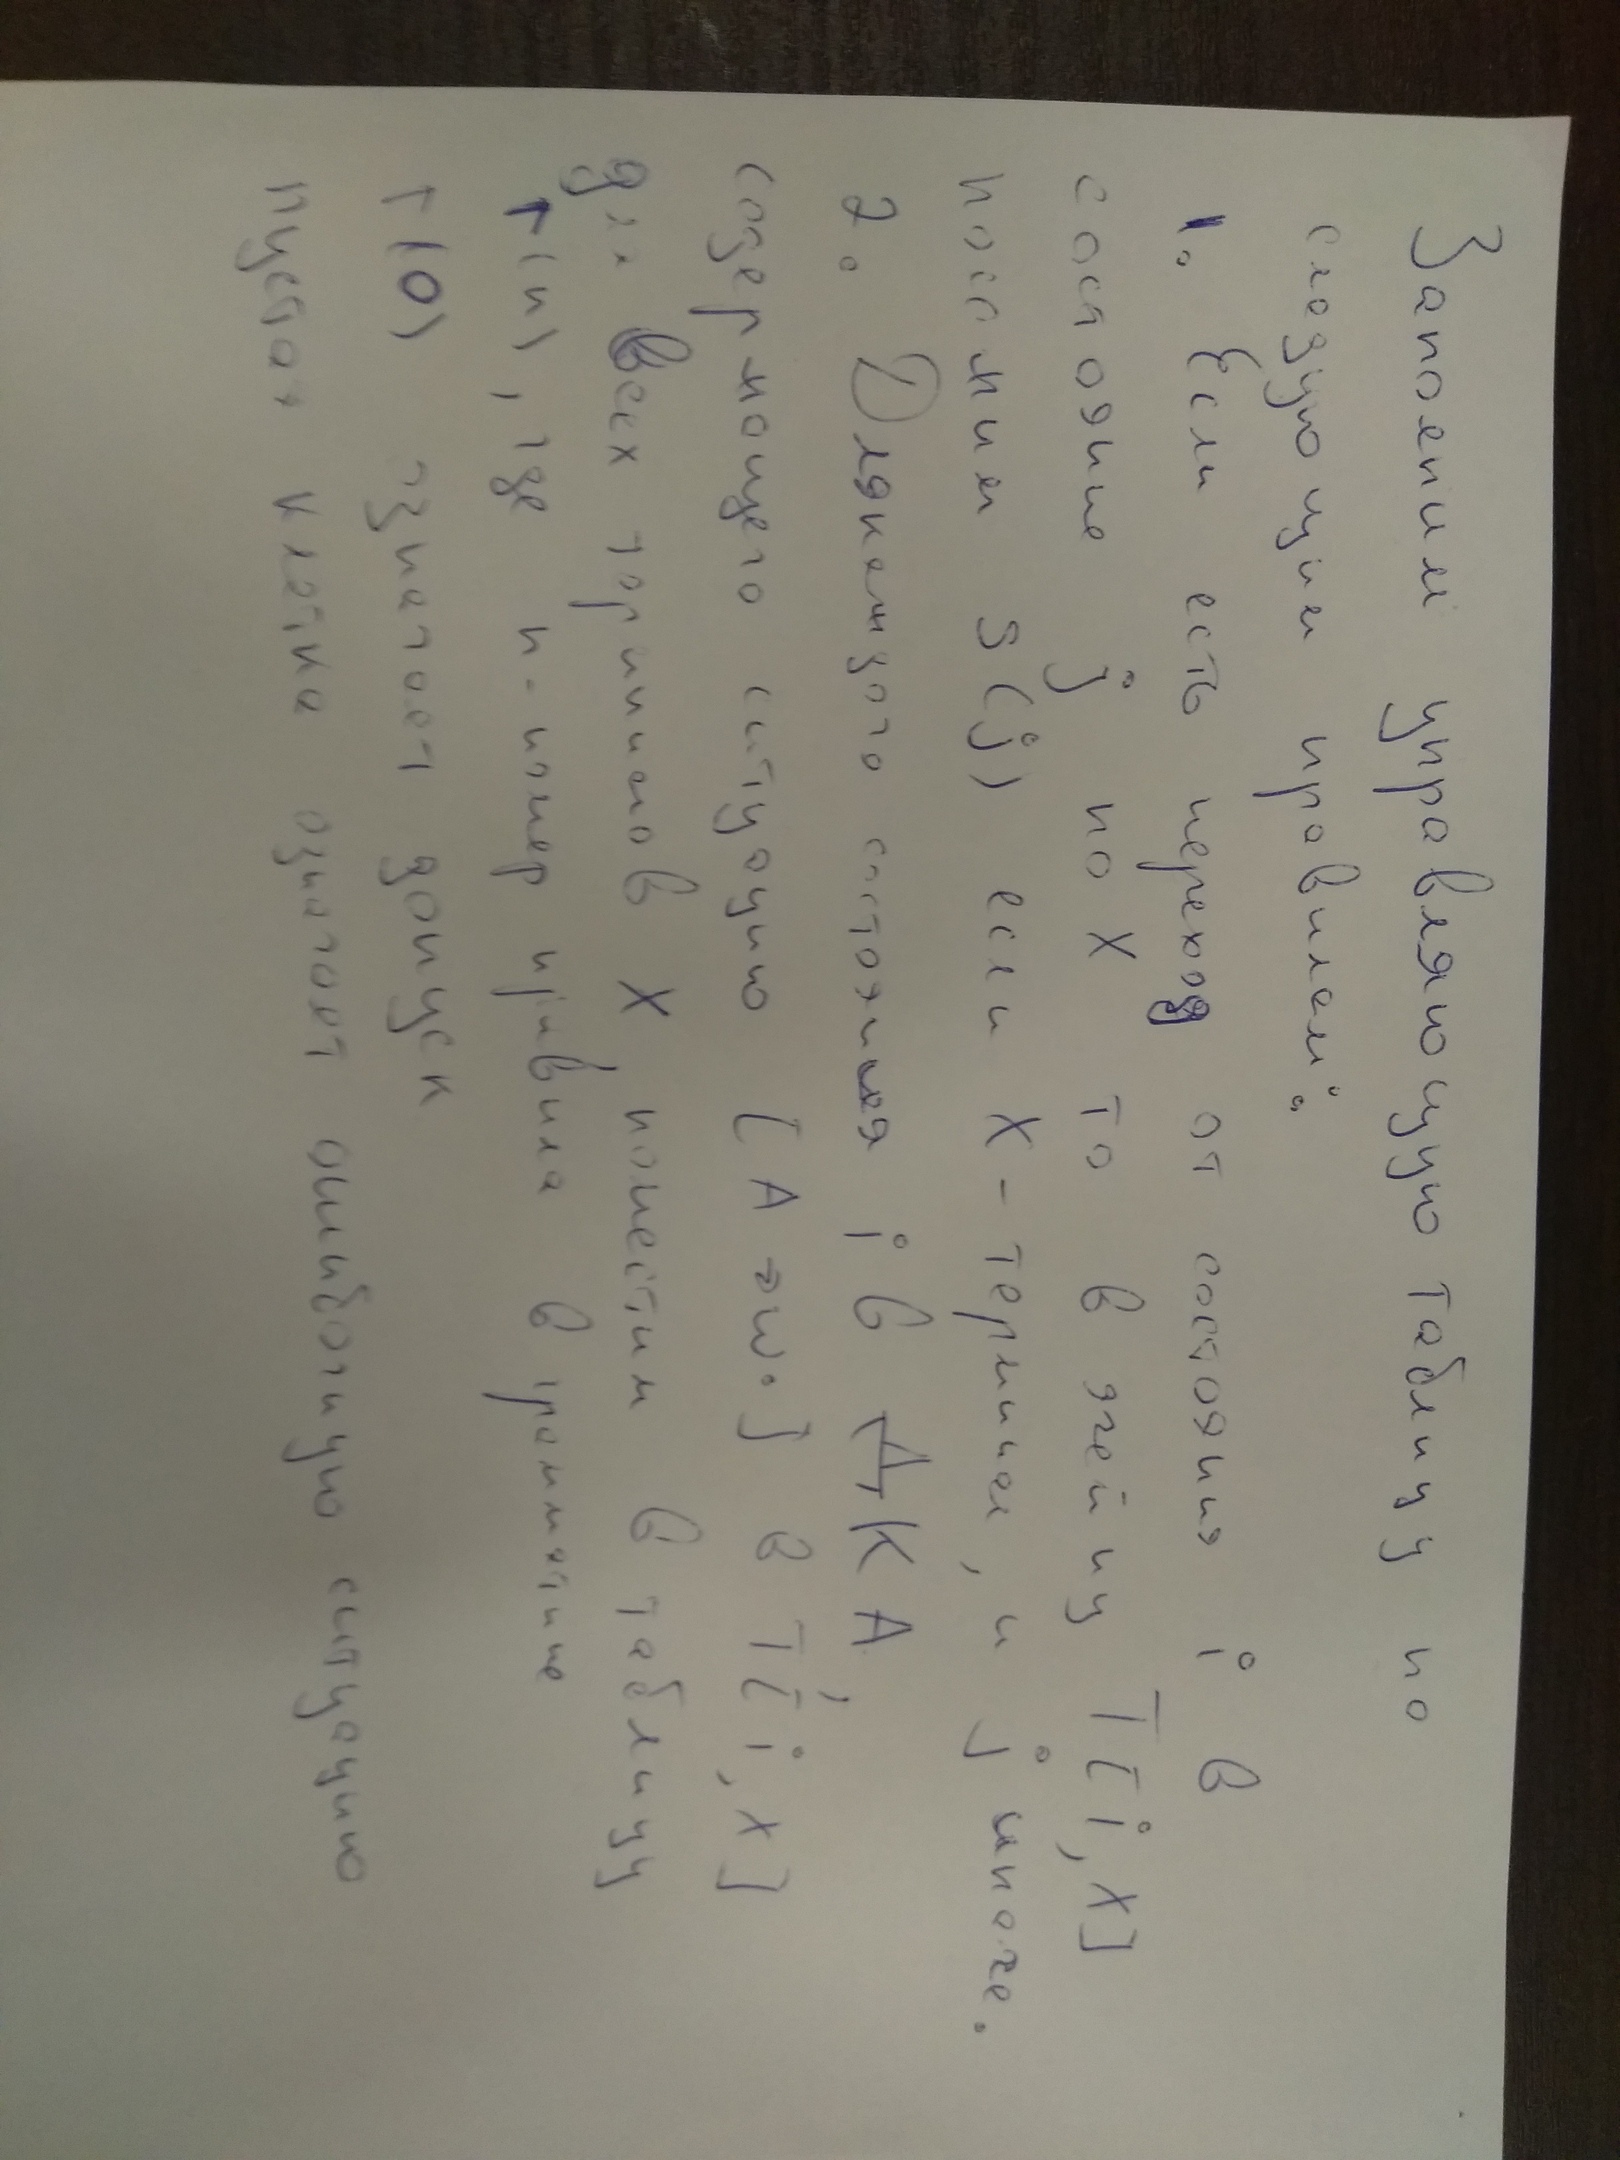 Заполним управляющую таблицу по
следующим правилам:
1. Если есть переход от состояния i в
состояние j по X то в ячейку T[i,x]
S(j) если X - терминал, и j иначе.
2. Для каждого состояния i в ДКА,
содержащего ситуацию [A→w.] в T[i,x]
для всех терминалов X, поместим в таблицу
r(n), где n - номер правила в грамматике
r(0) означает допуск
пустая клетка означает ошибочную ситуацию